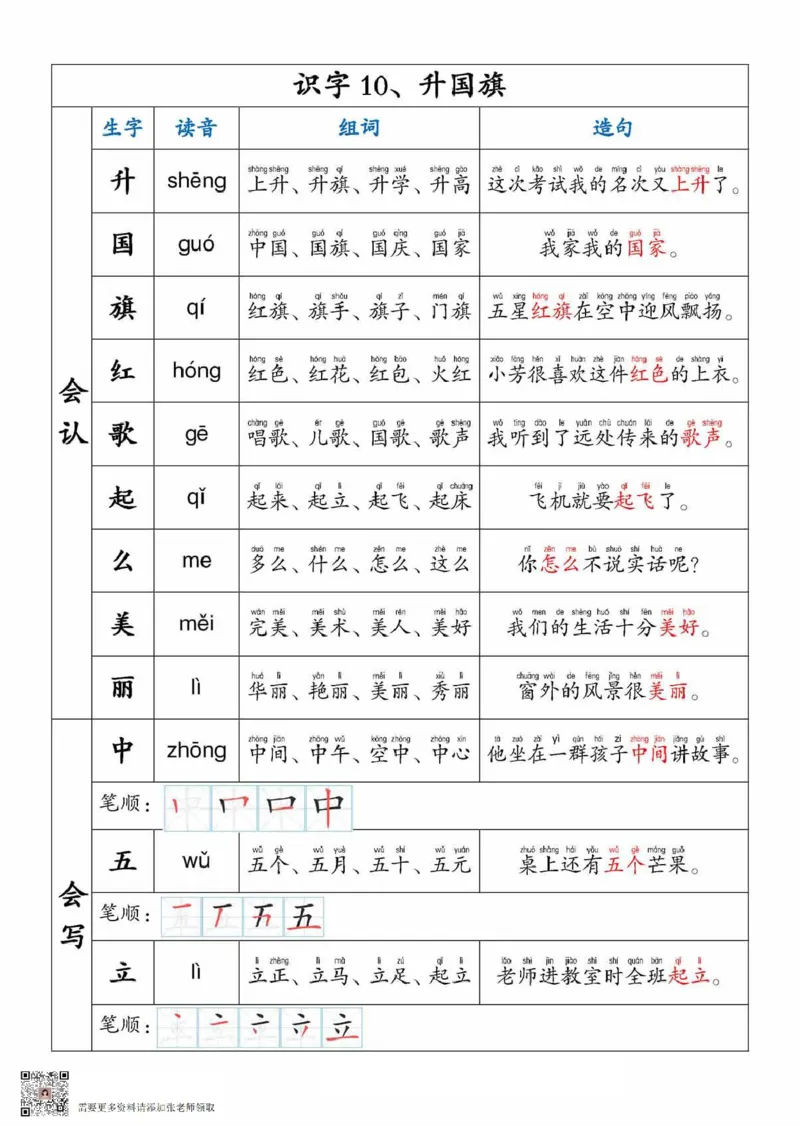 识字 10、升国旗
生字 读音 组词 造句
会认
shàng shēng shēng qí shēng xué shēng gāo zhè cì kǎo shì wǒ de míng cì yòu shàng shēng le
升 shēng 上升、升旗、升学、升高 这次考试我的名次又上升了。
zhōng guó guó qí guó qìng guó jiā wǒ jiā wǒ de guó jiā
国 guó 中国、国旗、国庆、国家 我家我的国家。
hóng qí qí shǒu qí zǐ mén qí wǔ xīng hóng qí zài kōng zhōng yíng fēng piāo yáng
旗 qí 红旗、旗手、旗子、门旗 五星红旗在空中迎风飘扬。
hóng sè hóng huā hóng bāo huǒ hóng xiǎo fāng hěn xǐ huān zhè jiàn hóng sè de shàng yī
红 hóng 红色、红花、红包、火红 小芳很喜欢这件红色的上衣。
chàng gē ér gē guó gē gē shēng wǒ tīng dào le yuǎn chù chuán lái de gē shēng
歌 gē 唱歌、儿歌、国歌、歌声 我听到了远处传来的歌声。
qǐ lái qǐ lì qǐ fēi qǐ chuáng fēi jī jiù yào qǐ fēi le
起 qǐ 起来、起立、起飞、起床 飞机就要起飞了。
duō me shén me zěn me zhè me nǐ zěn me bù shuō shí huà ne
么 me 多么、什么、怎么、这么 你怎么不说实话呢?
wán měi měi shù měi rén měi hǎo wǒ men de shēng huó shí fēn měi hǎo
美 měi 完美、美术、美人、美好 我们的生活十分美好。
huá lì yàn lì měi lì xiù lì chuāng wài de fēng jǐng hěn měi lì
丽 lì 华丽、艳丽、美丽、秀丽 窗外的风景很美丽。
会写
zhōng jiān zhōng wǔ kōng zhōng zhōng xīn tā zuò zài yì qún hái zi zhōng jiān jiǎng gù shì
中 zhōng 中间、中午、空中、中心 他坐在一群孩子中间讲故事。
笔顺: 中
wǔ gè wǔ yuè wǔ shí wǔ yuán zhuō shàng hái yǒu wǔ gè máng guǒ
五 wǔ 五个、五月、五十、五元 桌上还有五个芒果。
笔顺: 五
lì zhèng lì mǎ lì zú qǐ lì lǎo shī jìn jiào shì shí quán bān qǐ lì
立 lì 立正、立马、立足、起立 老师进教室时全班起立。
笔顺: 立
需要更多资料请添加张老师领取